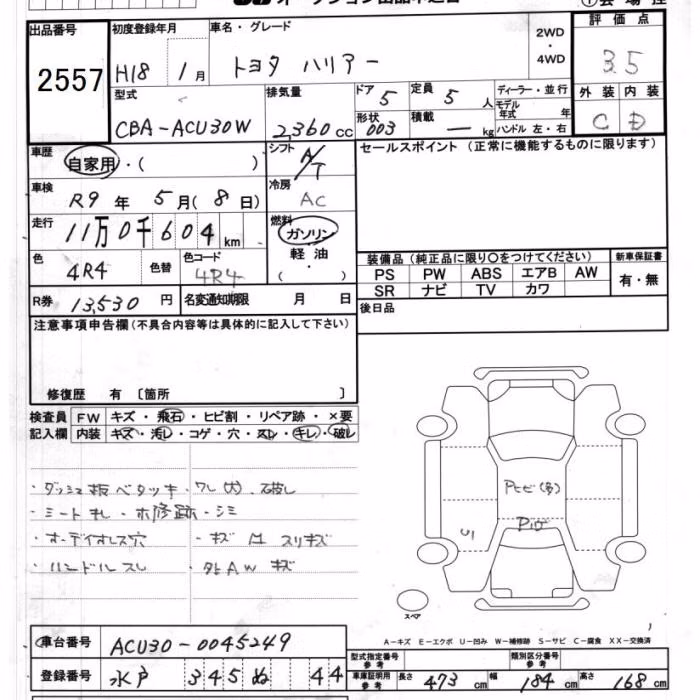 出品番号
2557
初度登録年月
H18 1月
車名・グレード
トヨタ ハリアー
2WD
・
4WD
評価点
3.5
外装 内装
C D
型式
CBA-ACU30W
排気量
2,360cc
ドア 5
形状 003
定員 5人
積載 ー kg
ディーラー・並行
モデル年式 年
ハンドル 左・右
車歴
自家用・( )
シフト
A/T
セールスポイント (正常に機能するものに限ります)
車検
R9年 5月(8日)
冷房
AC
走行
11万0千604km
燃料
ガソリン
・
軽油
・
( )
色
4R4
色替
色コード
4R4
装備品(純正品に限り○をつけてください)
新車保証書
PS PW ABS エアB AW
SR ナビ TV カワ
有・無
R券 13,530円
名変通知期限 月 日
後日品
注意事項申告欄(不具合内容等は具体的に記入して下さい)
修復歴 有 〔箇所 〕
検査員 FW キズ・飛石・ヒビ割・リペア跡・×要
記入欄 内装 キズ・汚レ・コゲ・穴・スレ・キレ・破レ
・ダッシュ板ベタツキ・ワレ(大)破レ
・シートキレ・補修跡・シミ
・オーディオレス穴 ・キズ M スリキズ
・ハンドルスレ ・社AWキズ
Pヒビ(多)
U1
スペア
A-キズ E-エクボ U-凹み W-補修跡 S-サビ C-腐食 XX-交換済
車台番号 ACU30-0045249
登録番号 水戸 345 ぬ 44
型式指定番号
参考
類別区分番号
参考
車庫証明用
参考
長さ 473cm 幅 184cm 高さ 168cm